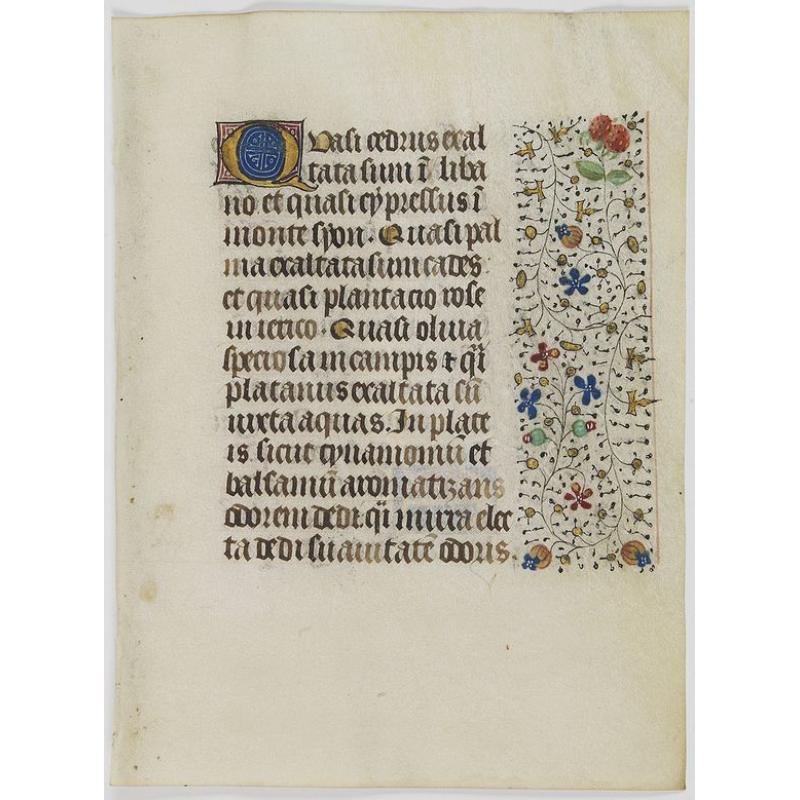 Quasi cedrus exal
tata sum ī liba
no et quasi cypressus ī
monte syon. Quasi pal
ma exaltata sum cades
et quasi plantacio rose
in ierico. Quasi oliua
speciosa in campis ⁊ q̄i
platanus exaltata sū
iuxta aquas. In plate
is sicut cynamomū et
balsamū aromatizans
odorem dedi. q̄i mirra elec
ta dedi suauitatē odoris.